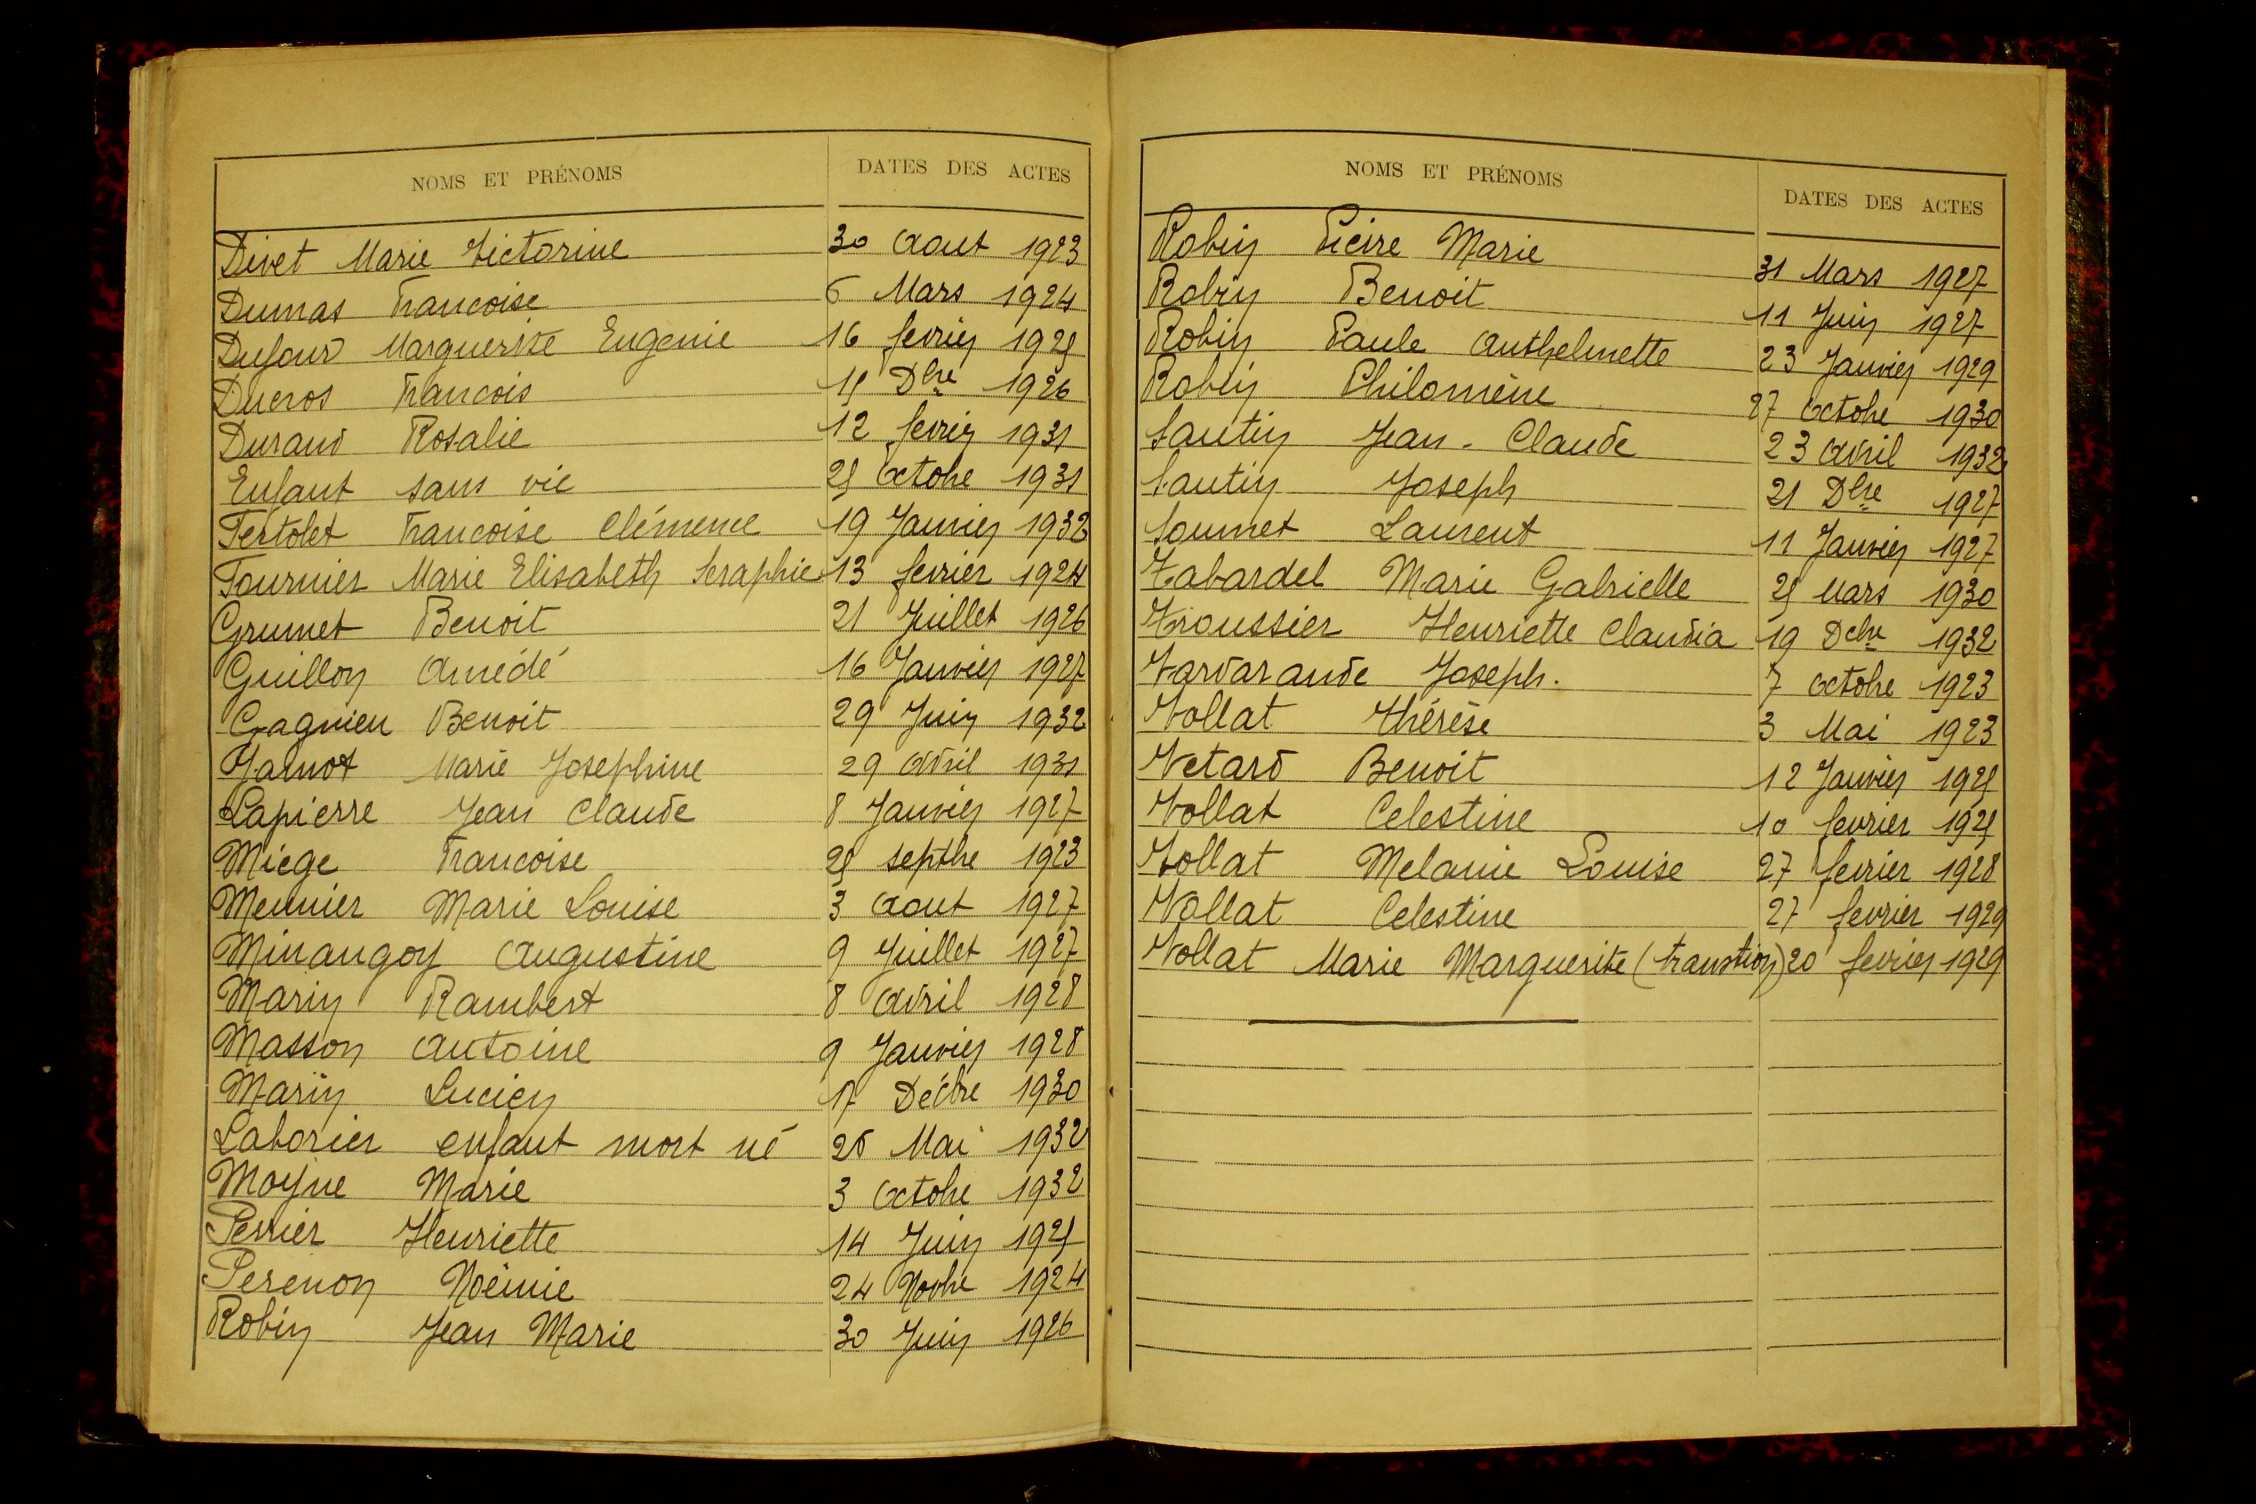 NOMS ET PRÉNOMS DATES DES ACTES
Divet Marie Victorine 30 Aout 1923
Dumas Francoise 6 Mars 1924
Dufour Marguerite Eugenie 16 fevrier 1925
Ducros Francois 15 Dbre 1926
Durand Rosalie 12 fevrier 1931
Enfant sans vie 25 Octobre 1931
Fertolet Francoise Clémence 19 Janvier 1932
Fournier Marie Elisabeth Seraphie 13 fevrier 1924
Grumet Benoit 21 Juillet 1926
Guillon Amédé 16 Janvier 1927
Gagnieu Benoit 29 Juin 1932
Marie Josephine 29 Avril 1931
Lapierre Jean Claude 8 Janvier 1927
Miege Francoise 25 septbre 1923
Meunier Marie Louise 3 Aout 1927
Minangoy Augustine 9 Juillet 1927
Marin Rambert 8 Avril 1928
Masson Antoine 9 Janvier 1928
Marin Lucien 17 Décbre 1930
Laborier enfant mort né 26 Mai 1932
Moyne Marie 3 Octobre 1932
Perrier Henriette 14 Juin 1925
Perenon Noémie 24 Novbre 1924
Robin Jean Marie 30 Juin 1926
NOMS ET PRÉNOMS DATES DES ACTES
Robin Pierre Marie 31 Mars 1927
Robin Benoit 11 Juin 1927
Robin Paule Anthelmette 23 Janvier 1929
Robin Philomène 27 Octobre 1930
Santin Jean-Claude 23 Avril 1932
Santin Joseph 21 Dbre 1927
Soumet Laurent 11 Janvier 1927
Tabardel Marie Gabrielle 25 Mars 1930
Troussier Henriette Claudia 19 Dcbre 1932
Vardarande Joseph. 7 Octobre 1923
Vollat Thérèse 3 Mai 1923
Vetard Benoit 12 Janvier 1925
Vollat Celestine 10 fevrier 1925
Vollat Melanie Louise 27 fevrier 1928
Vollat Celestine 27 fevrier 1929
Vollat Marie Marguerite (transtion) 20 fevrier 1929